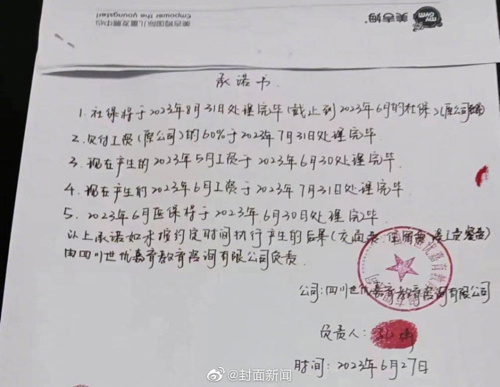 美吉姆
MY GYM
美吉姆国际儿童发展中心
承诺书
1. 社保将于2023年8月31日处理完毕（截止到2023年6月的社保）（原公司
2. 欠付工资（原公司）的60%于2023年7月31日处理完毕
3. 现在产生的2023年5月工资于2023年6月30处理完毕
4. 现在产生的2023年6月工资于2023年7月31日处理完毕
5. 2023年6月医保将于2023年6月30日处理完毕
以上承诺如未按约定时间执行产生的后果（交通费、
由四川世优嘉育教育咨询有限公司负责
公司:四川世优嘉育教育咨询有限公司
负责人:
时间: 2023年6月27日
@封面新闻